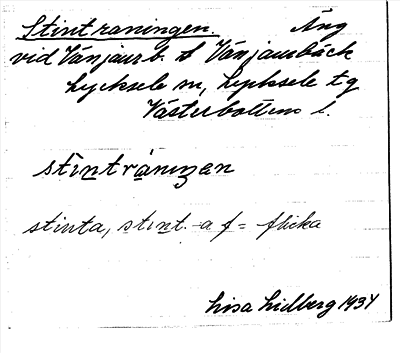 Stintraningen. Äng
vid Vänjaurb. t Vänjaurbäck
Lycksele sn, Lycksele tg
Västerbottens l.
stintráningan
stinta, stint -a f = flicka
Lisa Lidberg 1934